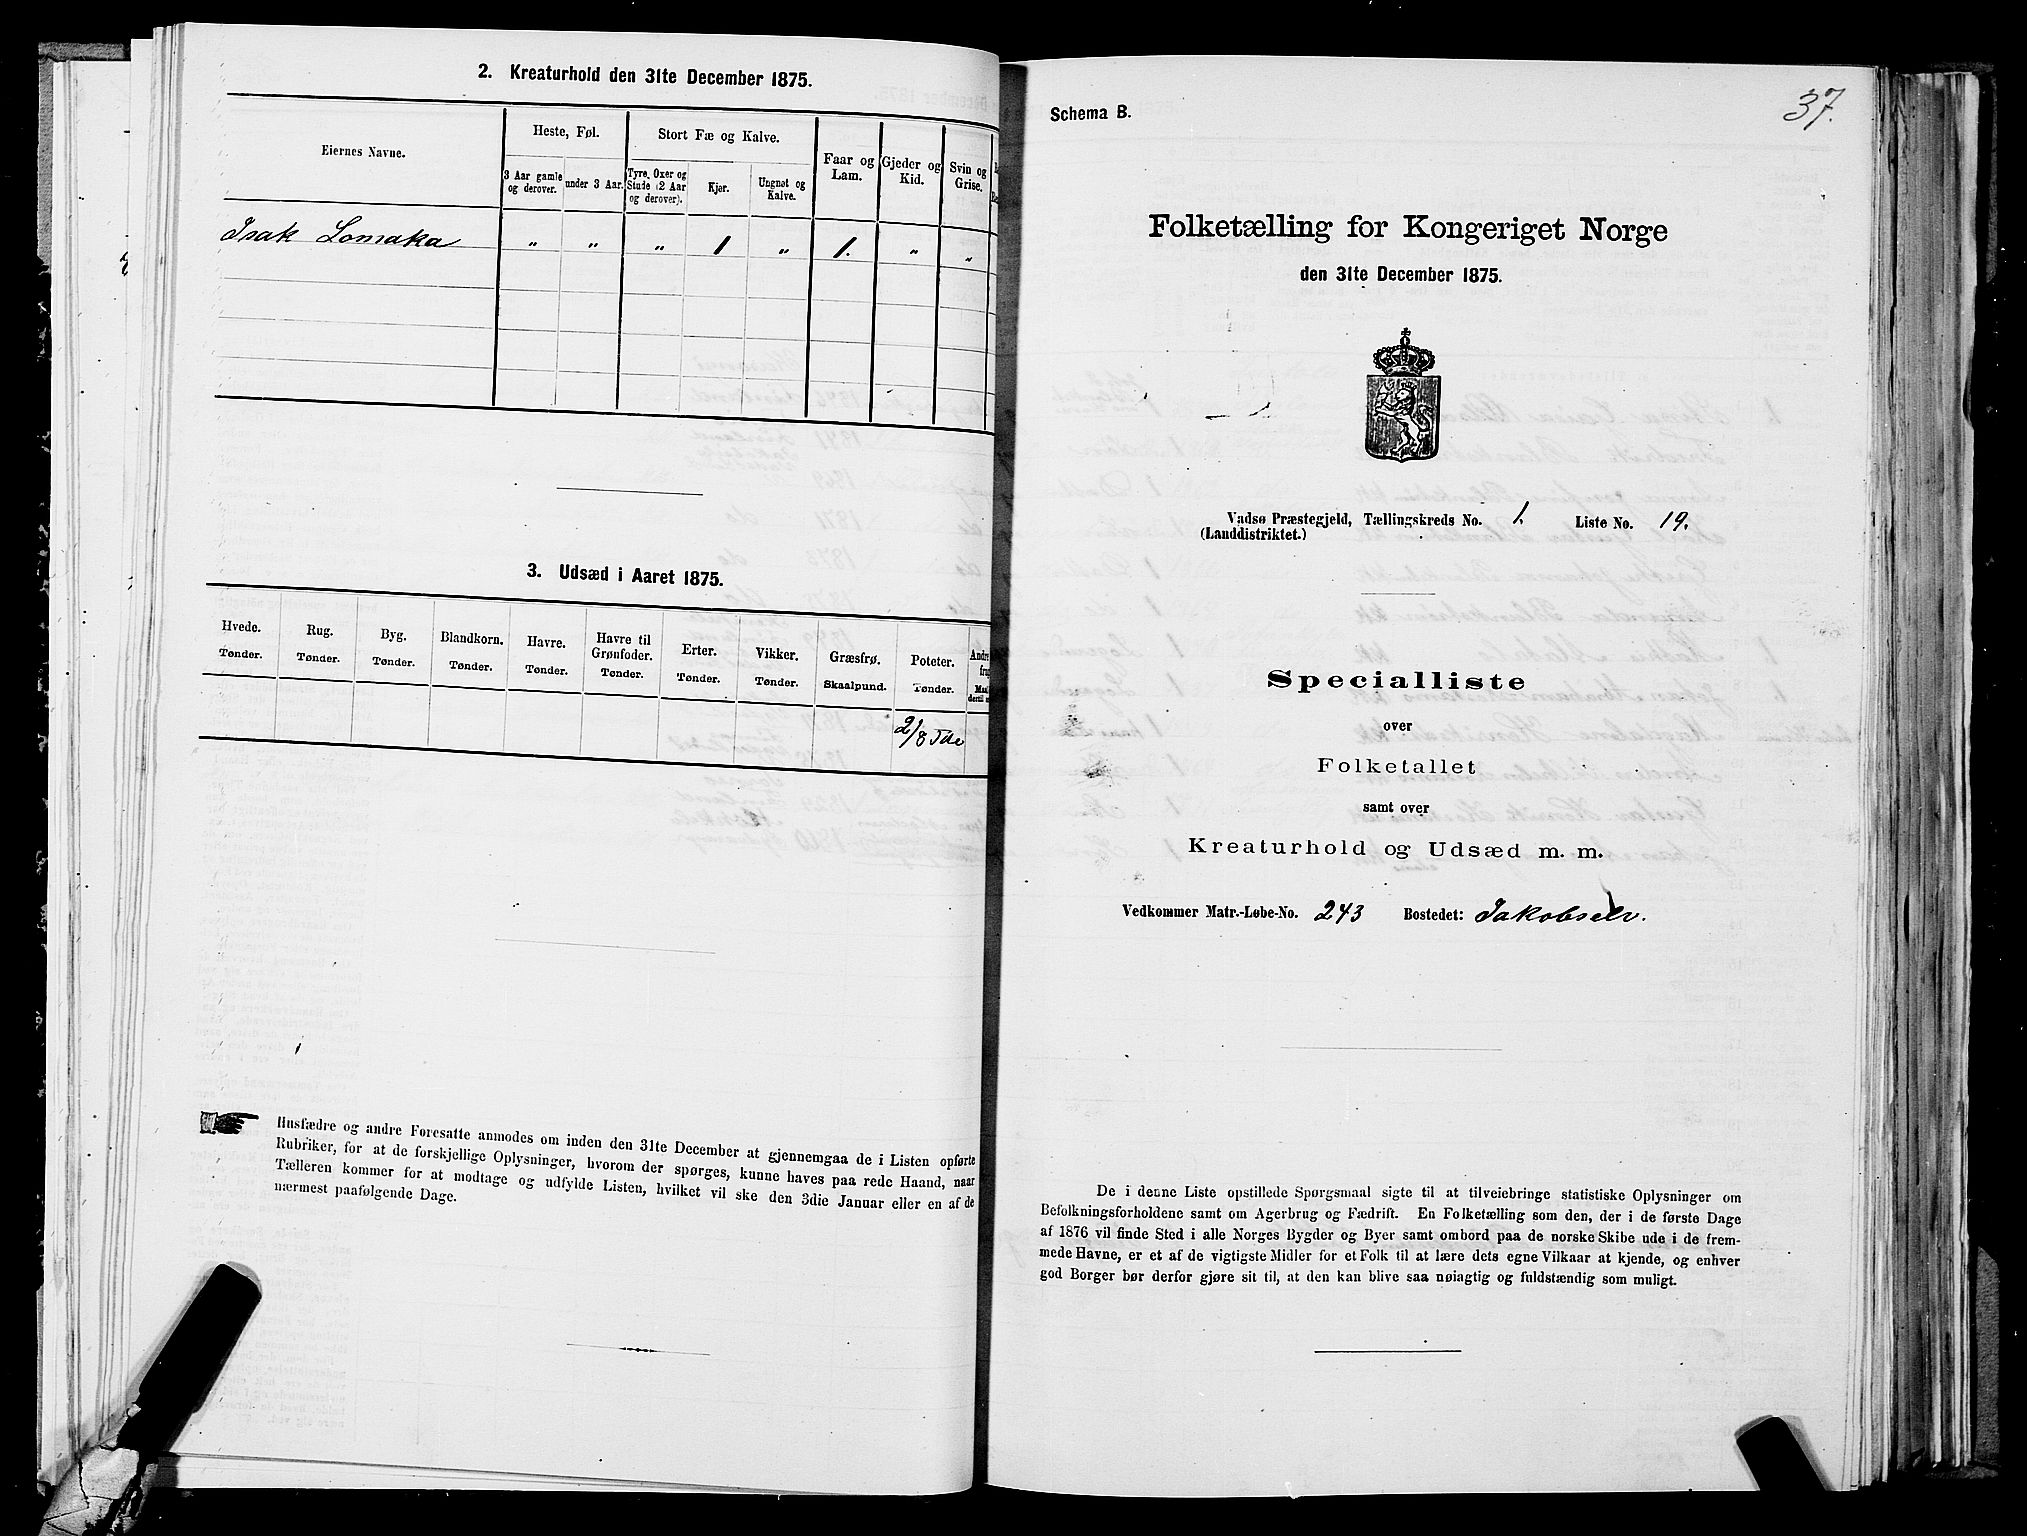 2. Kreaturhold den 31te December 1875.
Eiernes Navne.
Heste, Føl.
Stort Fæ og Kalve.
Faar og Lam.
Gjeder og Kid.
Svin og Grise.
3 Aar gamle og derover.
under 3 Aar.
Tyre, Oxer og Stude (2 Aar og derover).
Kjør.
Ungnøt og Kalve.
Isak Lomaka " " " 1 " 1. " "
3. Udsæd i Aaret 1875.
Hvede. Rug. Byg. Blandkorn. Havre. Havre til Grønfoder. Erter. Vikker. Græsfrø. Poteter. Andre
Tønder. Tønder. Tønder. Tønder. Tønder. Tønder. Tønder. Tønder. Skaalpund. Tønder.
2/8 Tde
Husfædre og andre Foresatte anmodes om inden den 31te December at gjennemgaa de i Listen opførte
Rubriker, for at de forskjellige Oplysninger, hvorom der spørges, kunne haves paa rede Haand, naar
Tælleren kommer for at modtage og udfylde Listen, hvilket vil ske den 3die Januar eller en af de
nærmest paafølgende Dage.
37.
Schema B.
Folketælling for Kongeriget Norge
den 31te December 1875.
Vadsø Præstegjeld, Tællingskreds No. 1. Liste No. 19.
(Landdistriktet.)
Specialliste
over
Folketallet
samt over
Kreaturhold og Udsæd m. m.
Vedkommer Matr.-Løbe-No. 243 Bostedet: Jakobselv.
De i denne Liste opstillede Spørgsmaal sigte til at tilveiebringe statistiske Oplysninger om
Befolkningsforholdene samt om Agerbrug og Fædrift. En Folketælling som den, der i de første Dage
af 1876 vil finde Sted i alle Norges Bygder og Byer samt ombord paa de norske Skibe ude i de frem-
mede Havne, er et af de vigtigste Midler for et Folk til at lære dets egne Vilkaar at kjende, og enhver
god Borger bør derfor gjøre sit til, at den kan blive saa nøiagtig og fuldstændig som muligt.